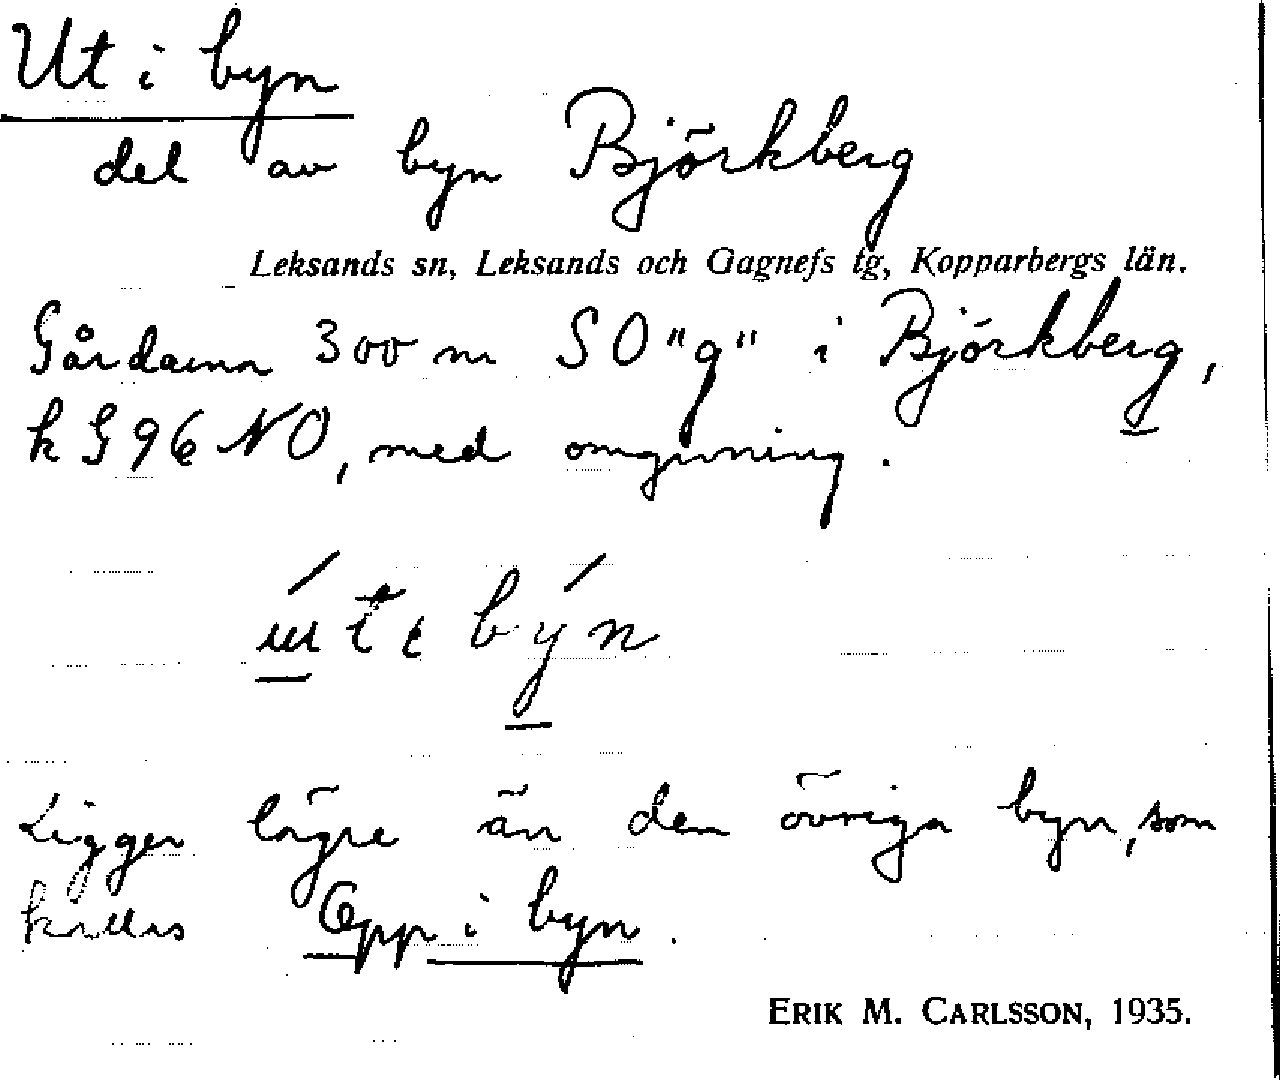 Ut i byn
del av byn Björkberg
Leksands sn, Leksands och Gagnefs tg, Kopparbergs län.
Gårdarna 300 m SO "g" i Björkberg,
k G 96 NO, med omgivning.
út i býn
Ligger lägre än den övriga byn, som
kallas Opp i byn.
ERIK M. CARLSSON, 1935.